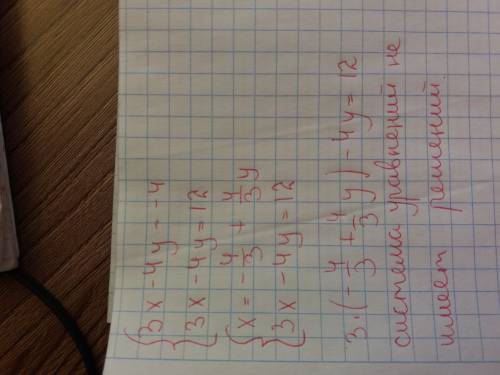 {3x - 4y = -4
{3x - 4y = 12
{x = -4/3 + 4/3 y
{3x - 4y = 12
3·(-4/3 + 4/3 y) - 4y = 12
система уравнений не
имеет решений.